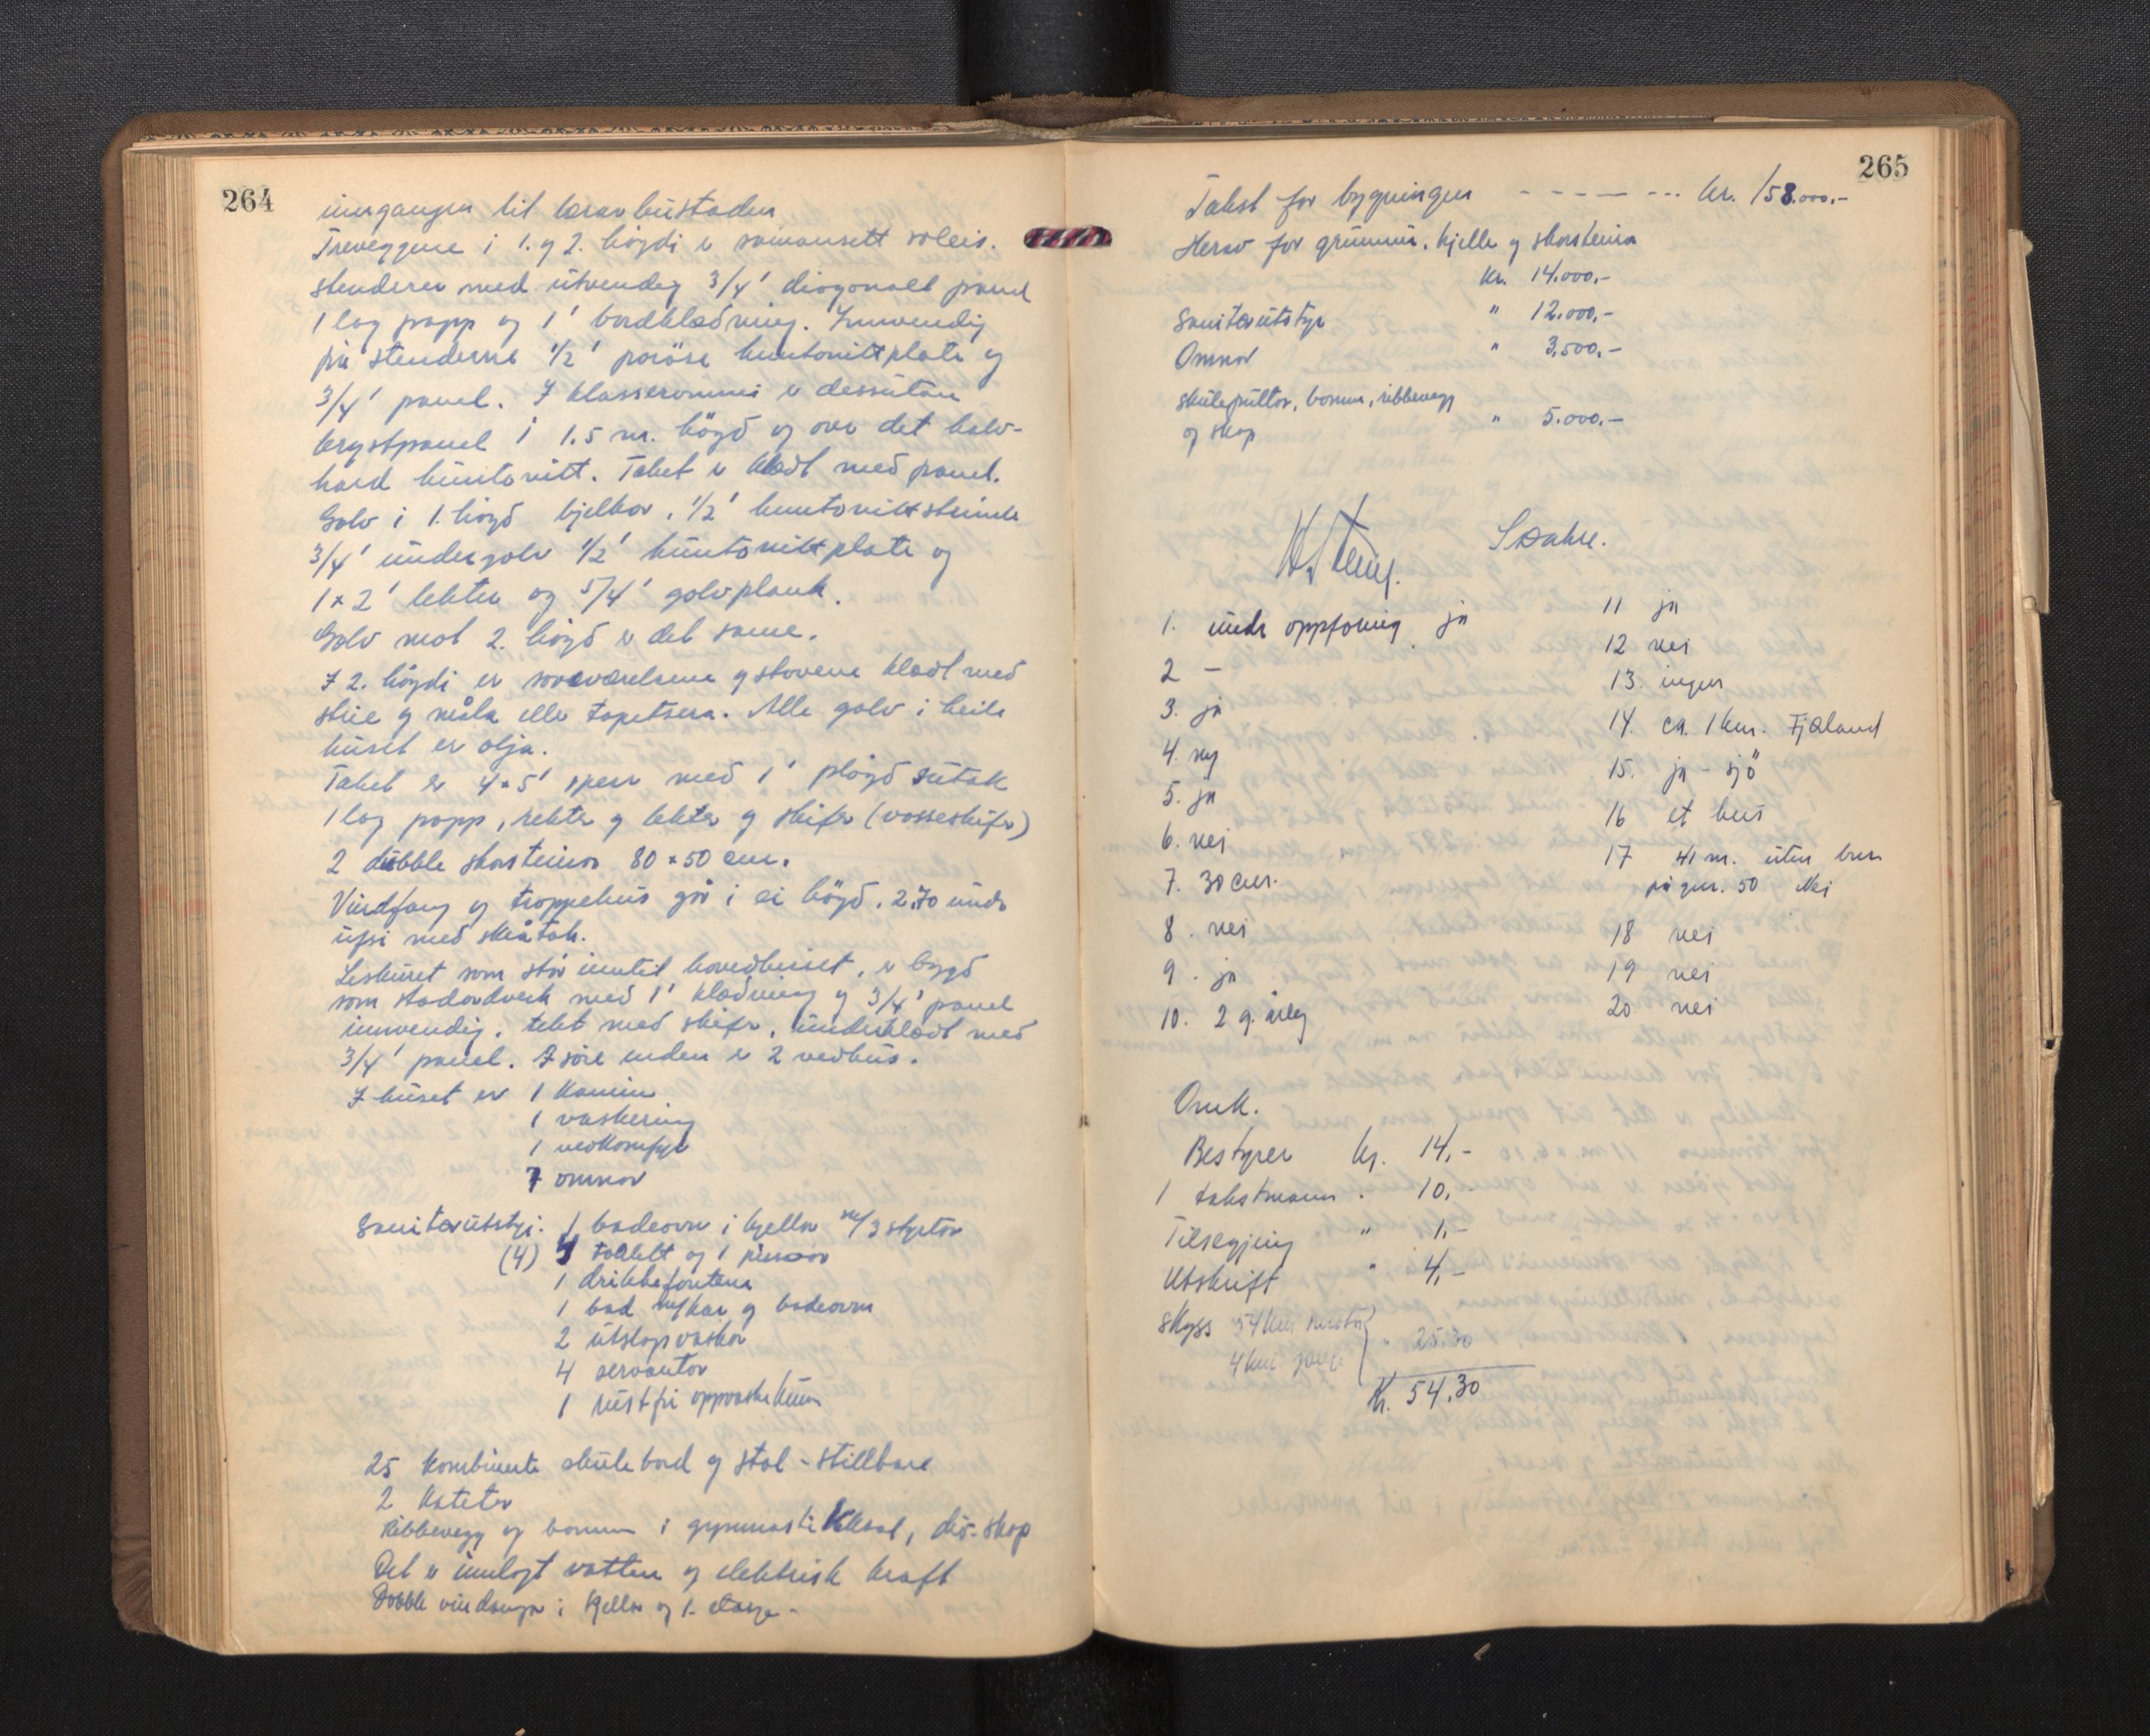 264
inngangen til lærarbustaden
Treveggene i 1. og 2. högdi er samansett soleis.
stenderer med utvendig 3/4' diagonalt panel
1 lag papp og 1' bordklædning. Innvendig
på stenderne 1/2' porøse huntonittplate og
3/4' panel. I klasseromni er dessutan
brystpanel i 1.5 m. högd og over det halv-
hard huntonitt. Taket er klædt med panel.
Golv i 1. högd bjelkar, 1/2' huntonitt
3/4' undergolv 1/2' huntonittplate og
1 x 2' lekter og 5/4' golvplank.
Golv mot 2. högd er det same.
I 2. högdi er soveværelsene og stovene klædt med
strie og måla eller tapetsera. Alle golv i heile
huset er olja.
Taket er 4 x 5' sperr med 1' pløgd sutak
1 lag papp, rekter og lekter og skifer (vosseskifer)
2 dubble skorsteinar 80 x 50 cm.
Vindfang og trappehus går i ei högd. 2.70 under
upsi med skråtak.
Leskuret som står inntil hovedhuset, er bygd
som stavordverk med 1' klædning og 3/4' panel
innvendig. tekt med skifer, underklædt med
3/4' panel. I söre enden er 2 vedhus.
I huset er 1 kamin
1 vaskering
1 vedkomfyr
7 omnar
Saniterutstyr. 1 badeovn i kjellar m/3 styrtar
(4) 4 toalett og 1 pissoar
1 drikkefontene
1 bad m/kar og badeovn
2 utslagsvaskar
4 servantar
1 rustfri oppvaskkum
25 kombinerte skulebord og stol - stillbare
2 kateter
Ribbevegg og bommer i gymnastikksal, div. skap
Det er innlagt vatten og elektrisk kraft
Dobble vindauga i kjellar og 1. etasje -
265
Takst for bygningen - - - - - - - kr. 158.000.-
Herav for grunnmur, kjellar og skorsteinar
kr. 14.000,-
Saniterutstyr " 12.000,-
Omnar " 3.500,-
skulepultar, bommer, ribbevegg
og skap " 5.000,-
1. under oppføring ja
2 -
3. ja
4. ny
5. ja
6. nei
7. 30 cm.
8. nei
9. ja
10. 2 g. årleg
11 ja
12 nei
13. ingen
14. ca. 1 km. Fjæland
15. ja - sjö
16 et hus
17 41 m. uten brann
på gnr. 50 Nei
18 nei
19 nei
20 nei
Omk.
Bestyrer kr. 14,-
1 takstmann " 10,-
Tilsegjing " 1,-
Utskrift " 4,-
Skyss 54 km
4 km " 25.30
Kr. 54.30